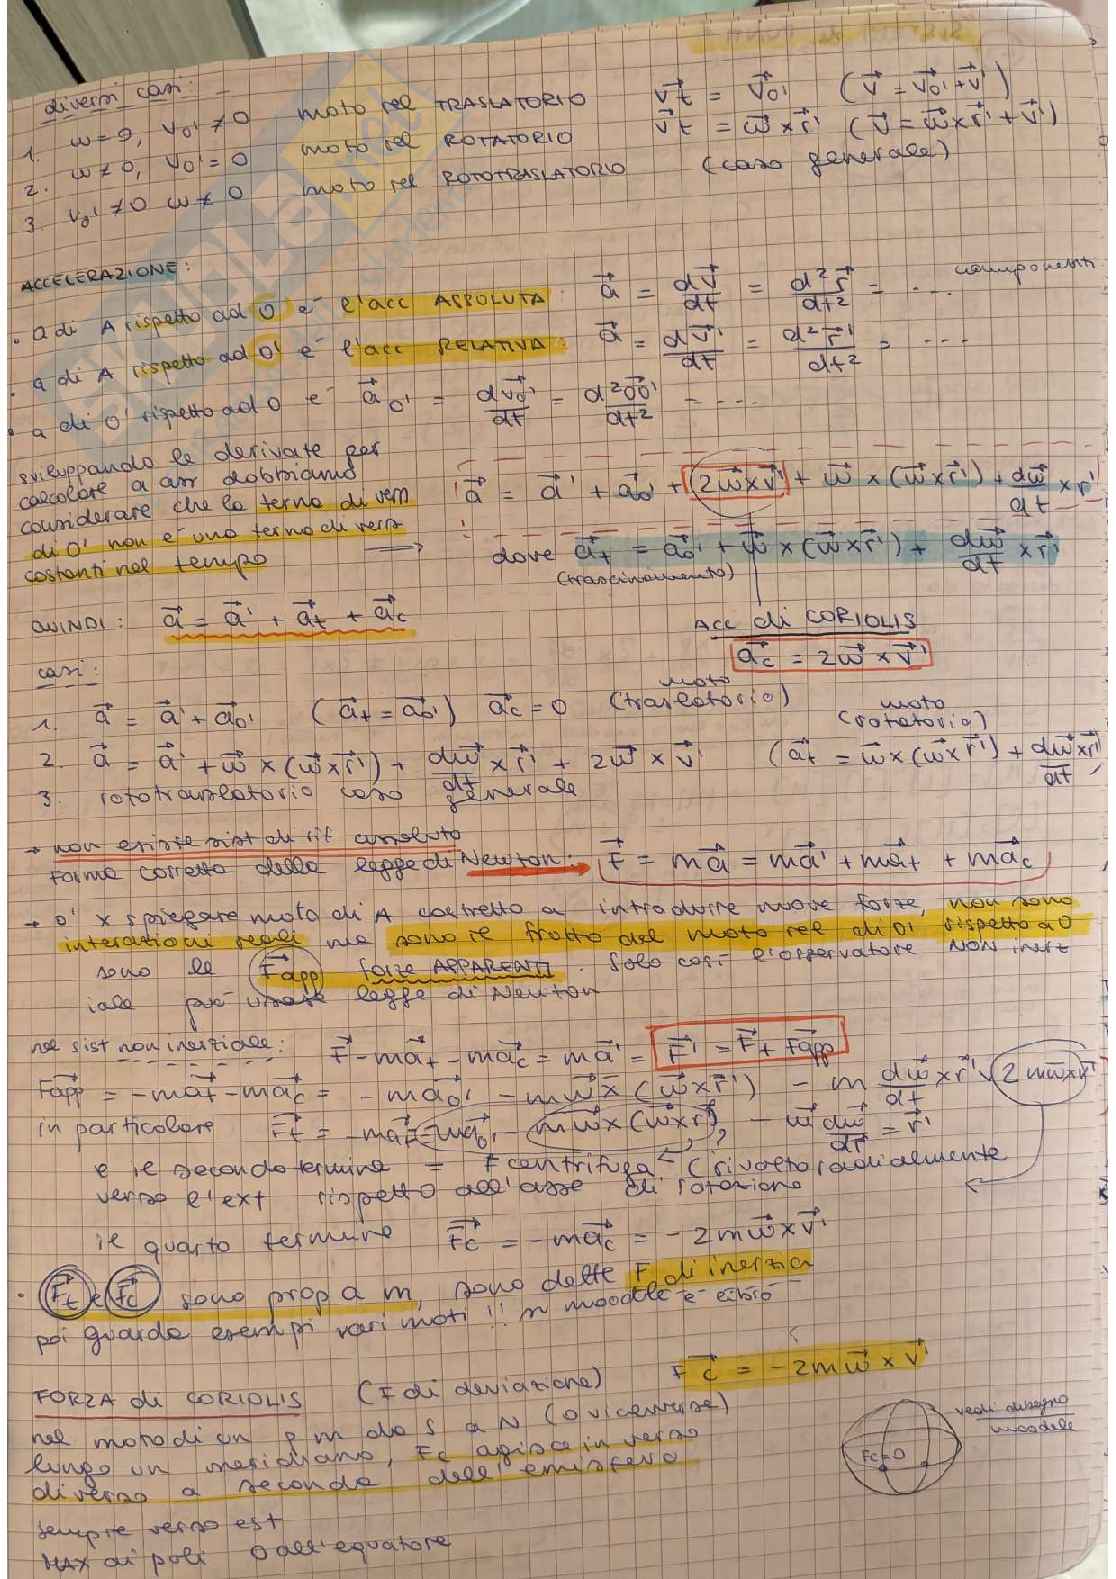 diversi casi:
1. ω = 0, v₀' ≠ 0 moto rel TRASLATORIO v⃗t = v⃗₀' (v⃗ = v⃗₀' + v⃗')
2. ω ≠ 0, v₀' = 0 moto rel ROTATORIO v⃗t = ω⃗ × r⃗' (v⃗ = ω⃗ × r⃗' + v⃗')
3. v₀' ≠ 0 ω ≠ 0 moto rel ROTOTRASLATORIO (caso generale)
ACCELERAZIONE: componenti
• a di A rispetto ad O è l'acc ASSOLUTA: a⃗ = dv⃗/dt = d²r⃗/dt² = ....
• a di A rispetto ad O' è l'acc RELATIVA: a⃗ = dv⃗'/dt = d²r⃗'/dt² = ....
• a di O' rispetto ad O è a⃗₀' = dv⃗₀'/dt = d²OO'/dt² = ....
sviluppando le derivate per
calcolare a ass dobbiamo
considerare che la terna di vers a⃗ = a⃗' + a⃗₀' + (2ω⃗ × v⃗') + ω⃗ × (ω⃗ × r⃗') + dω⃗/dt × r'
di O' non è una terna di versi
costanti nel tempo → dove a⃗t = a⃗₀' + ω⃗ × (ω⃗ × r⃗') + dω⃗/dt × r⃗'
(trascinamento)
QUINDI: a⃗ = a⃗' + a⃗t + a⃗c
Acc di CORIOLIS
a⃗c = 2ω⃗ × v⃗'
casi:
1. a⃗ = a⃗' + a⃗₀' (a⃗t = a⃗₀') a⃗c = 0 (moto traslatorio)
2. a⃗ = a⃗' + ω⃗ × (ω⃗ × r⃗') + dω⃗/dt × r⃗' + 2ω⃗ × v⃗' (moto rotatorio) (a⃗t = ω⃗ × (ω⃗ × r⃗') + dω⃗/dt × r⃗'
3. rototraslatorio caso generale
→ non esiste sist di rif assoluto
forma corretta della legge di Newton: F⃗ = ma⃗ = ma⃗' + ma⃗t + ma⃗c
→ O' x spiegare moto di A costretto a introdurre nuove forze, non sono
interazioni reali ma sono il frutto del moto rel di O' rispetto a O
sono le F⃗app forze APPARENTI. Solo così l'osservatore NON inerz
iale può usare legge di Newton
nel sist non inerziale: F⃗ - ma⃗t - ma⃗c = ma⃗' = F⃗' = F⃗ + F⃗app
F⃗app = -ma⃗t - ma⃗c = -ma⃗₀' - mω⃗ × (ω⃗ × r⃗') - m dω⃗/dt × r⃗' - 2mω⃗ × v⃗'
in particolare F⃗t = -ma⃗t = -ma⃗₀' - mω⃗ × (ω⃗ × r⃗') - m⃗ dω⃗/dt = r⃗'
e il secondo termine = F centrifuga (rivolta radialmente
verso l'ext rispetto all'asse di rotazione
il quarto termine F⃗c = -ma⃗c = -2mω⃗ × v⃗'
• F⃗t e F⃗c sono prop a m, sono dette F di inerzia
poi guarda esempi vari moti !! su moodle e libro
FORZA di CORIOLIS (F di deviazione) F⃗c = -2mω⃗ × v⃗'
nel moto di un p m da S a N (o viceversa)
lungo un meridiano, Fc agisce in verso
diverso a seconda dell'emisfero
vedi disegno
moodle
Fc=0
sempre verso est
MAX ai poli 0 all'equatore